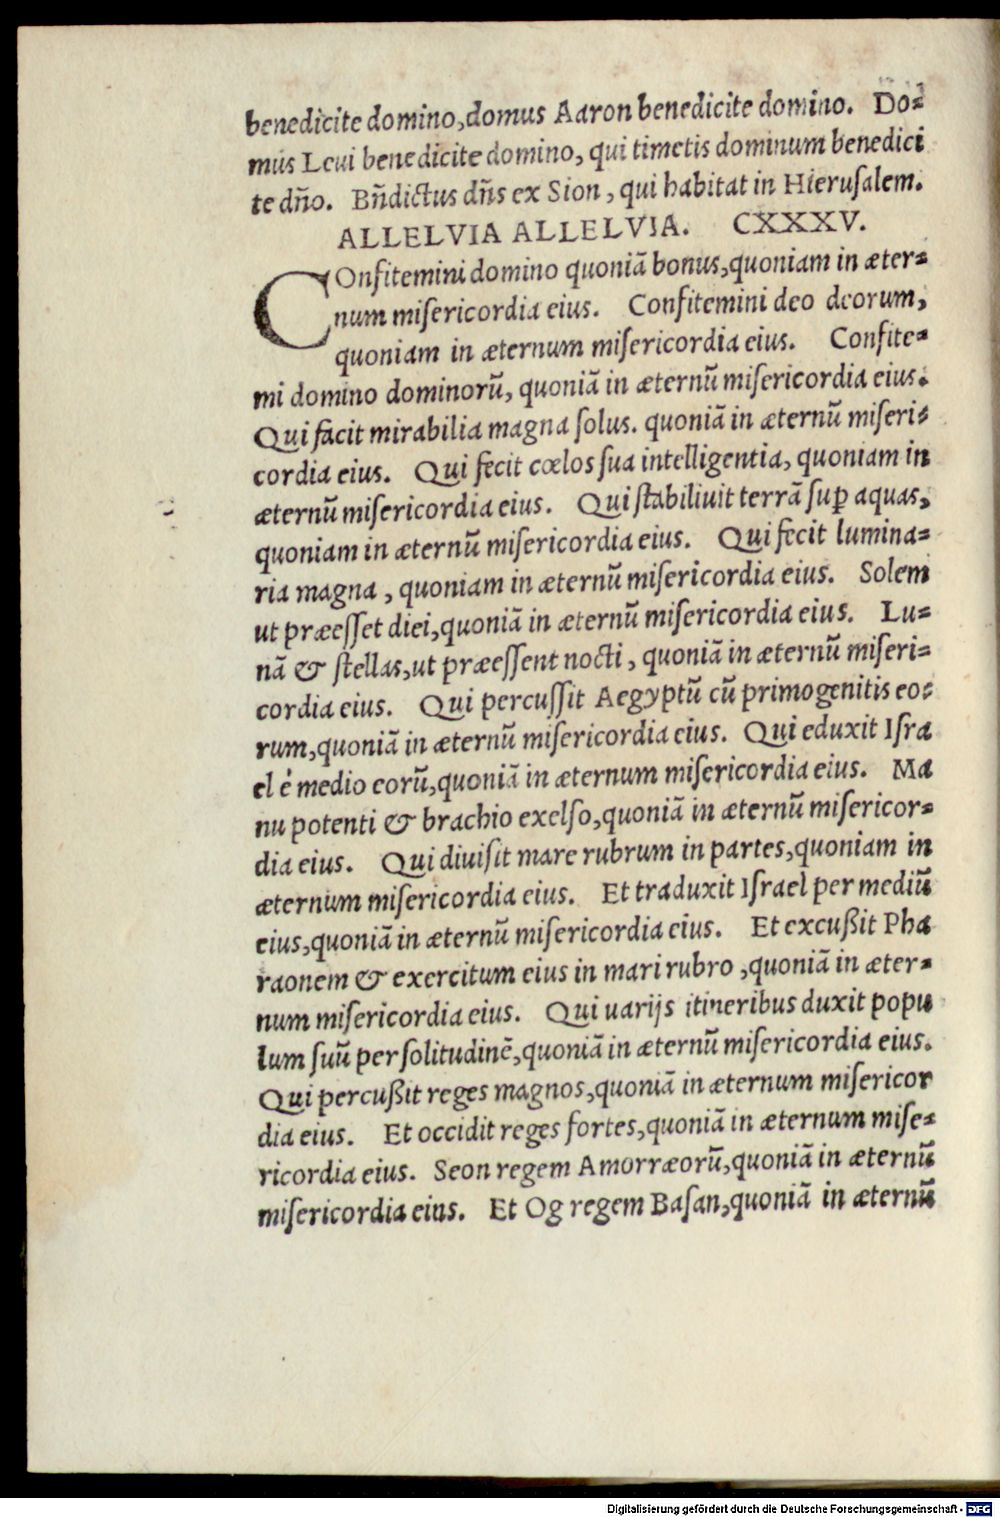 benedicite domino,domus Aaron benedicite domino. Do⸗
mus Leui benedicite domino, qui timetis dominum benedici
te dño. Bñdictus dñs ex Sion, qui habitat in Hieruſalem.
ALLELVIA ALLELVIA. CXXXV.
COnfitemini domino quoniã bonus,quoniam in æter⸗
num miſericordia eius. Confitemini deo deorum,
quoniam in æternum miſericordia eius. Confite⸗
mi domino dominorũ, quoniã in æternũ miſericordia eius.
Qui facit mirabilia magna ſolus. quoniã in æternũ miſeri⸗
cordia eius. Qui fecit cœlos ſua intelligentia, quoniam in
æternũ miſericordia eius. Qui ſtabiliuit terrã ſuꝑ aquas,
quoniam in æternũ miſericordia eius. Qui fecit lumina⸗
ria magna, quoniam in æternũ miſericordia eius. Solem
ut præeſſet diei,quoniã in æternũ miſericordia eius. Lu⸗
nã & ſtellas,ut præeſſent nocti, quoniã in æternũ miſeri⸗
cordia eius. Qui percuſſit Aegyptũ cũ primogenitis eo⸗
rum,quoniã in æternũ miſericordia eius. Qui eduxit Iſra
el è medio eorũ,quoniã in æternum miſericordia eius. Ma
nu potenti & brachio exelſo,quoniã in æternũ miſericor⸗
dia eius. Qui diuiſit mare rubrum in partes,quoniam in
æternum miſericordia eius. Et traduxit Iſrael per mediũ
eius,quoniã in æternũ miſericordia eius. Et excußit Pha
raonem & exercitum eius in mari rubro,quoniã in æter⸗
num miſericordia eius. Qui uarijs itineribus duxit popu
lum ſuũ per ſolitudinẽ,quoniã in æternũ miſericordia eius.
Qui percußit reges magnos,quoniã in æternum miſericor
dia eius. Et occidit reges fortes,quoniã in æternum miſe⸗
ricordia eius. Seon regem Amorræorũ,quoniã in æternũ
miſericordia eius. Et Og regem Baſan,quoniã in æternũ
Digitalisierung gefördert durch die Deutsche Forschungsgemeinschaft - DFG